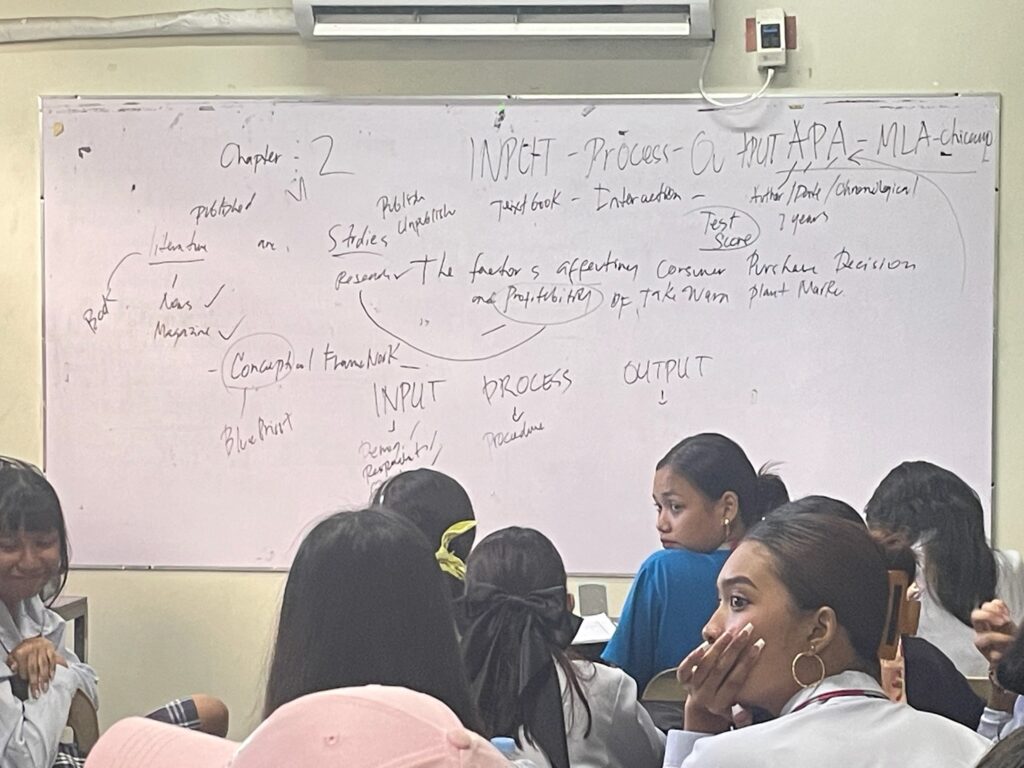 Chapter : 2
INPUT - Process - OUTPUT APA - MLA - Chicago
published
Publish
Unpublish
Textbook - Interaction -
Author/Date/Chronological
7 years
Test
Score
Literature
Studies
Researcher The factors affecting Consumer Purchase Decision
and Profitability OF Take Warn plant Marke
Book
News ✓
Magazine ✓
- Conceptual Framework -
INPUT PROCESS OUTPUT
BluePrint
Procedure
Respondents/